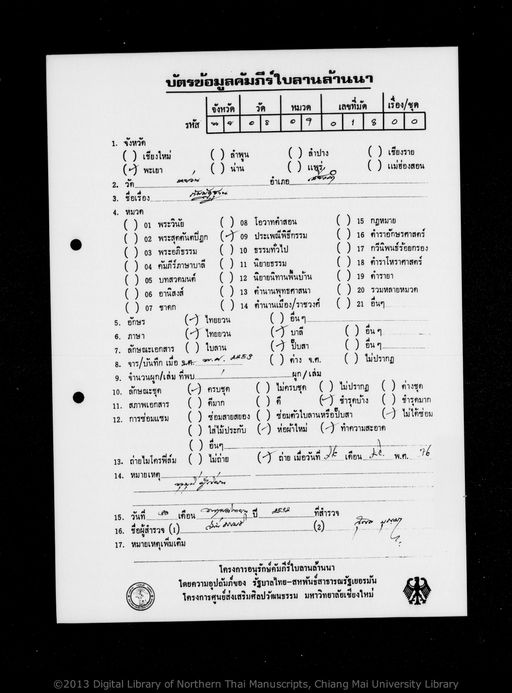 บัตรข้อมูลคัมภีร์ใบลานล้านนา
จังหวัด วัด หมวด เลขที่มัด เรื่อง/ชุด
รหัส 0 8 0 9 0 1 8 0 0
1. จังหวัด
( ) เชียงใหม่ ( ) ลำพูน ( ) ลำปาง ( ) เชียงราย
(✓) พะเยา ( ) น่าน ( ) แพร่ ( ) แม่ฮ่องสอน
2. วัด อำเภอ
3. ชื่อเรื่อง
4. หมวด
( ) 01 พระวินัย ( ) 08 โอวาทคำสอน ( ) 15 กฎหมาย
( ) 02 พระสุตตันตปิฎก (✓) 09 ประเพณีพิธีกรรม ( ) 16 ตำราอักษรศาสตร์
( ) 03 พระอภิธรรม ( ) 10 ธรรมทั่วไป ( ) 17 กวีนิพนธ์ร้อยกรอง
( ) 04 คัมภีร์ภาษาบาลี ( ) 11 นิยายธรรม ( ) 18 ตำราโหราศาสตร์
( ) 05 บทสวดมนต์ ( ) 12 นิยายนิทานพื้นบ้าน ( ) 19 ตำรายา
( ) 06 อานิสงส์ ( ) 13 ตำนานพุทธศาสนา ( ) 20 รวมหลายหมวด
( ) 07 ชาดก ( ) 14 ตำนานเมือง/ราชวงศ์ ( ) 21 อื่นๆ
5. อักษร (✓) ไทยยวน ( ) อื่นๆ
6. ภาษา (✓) ไทยยวน (✓) บาลี ( ) อื่นๆ
7. ลักษณะเอกสาร ( ) ใบลาน (✓) ปั๊บสา ( ) อื่นๆ
8. จาร/บันทึก เมื่อ จ.ศ. ( ) ค่าง จ.ศ. ( ) ไม่ปรากฏ
9. จำนวนผูก/เล่ม ที่พบ 1 ผูก/เล่ม
10. ลักษณะชุด (✓) ครบชุด ( ) ไม่ครบชุด ( ) ไม่ปรากฏ ( ) ค่างชุด
11. สภาพเอกสาร ( ) ดีมาก ( ) ดี (✓) ชำรุดบ้าง ( ) ชำรุดมาก
12. การซ่อมแซม ( ) ซ่อมสายสยอง ( ) ซ่อมตัวใบลานหรือปั๊บสา (✓) ไม่ได้ซ่อม
( ) ใส่ไม้ประกับ (✓) ห่อผ้าใหม่ (✓) ทำความสะอาด
( ) อื่นๆ
13. ถ่ายไมโครฟิล์ม ( ) ไม่ถ่าย (✓) ถ่าย เมื่อวันที่ เดือน พ.ศ.
14. หมายเหตุ
15. วันที่ เดือน ปี ที่สำรวจ
16. ชื่อผู้สำรวจ (1) (2)
17. หมายเหตุเพิ่มเติม
โครงการอนุรักษ์คัมภีร์ใบลานล้านนา
โดยความอุปถัมภ์ของ รัฐบาลไทย-สหพันธ์สาธารณรัฐเยอรมัน
โครงการศูนย์ส่งเสริมศิลปวัฒนธรรม มหาวิทยาลัยเชียงใหม่
©2013 Digital Library of Northern Thai Manuscripts, Chiang Mai University Library